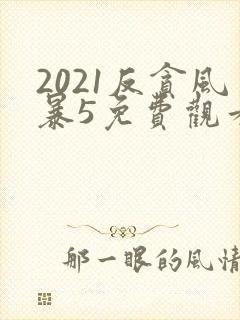 2021反貪風
暴5免費觀看
那一眼的風情